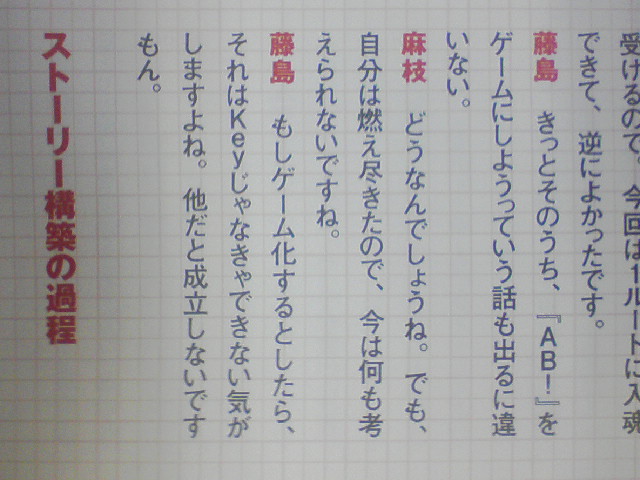 受けるので、今回は1ルートに入魂
できて、逆によかったです。
藤島　きっとそのうち、『AB!』を
ゲームにしようっていう話も出るに違
いない。
麻枝　どうなんでしょうね。でも、
自分は燃え尽きたので、今は何も考
えられないですね。
藤島　もしゲーム化するとしたら、
それはKeyじゃなきゃできない気が
しますよね。他だと成立しないです
もん。
ストーリー構築の過程